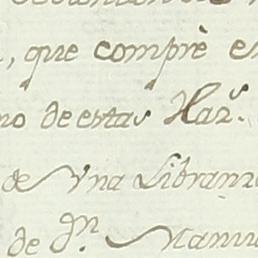 , que comprè e
no de estas Har.s
de Vna Libranz
de D.n Manu